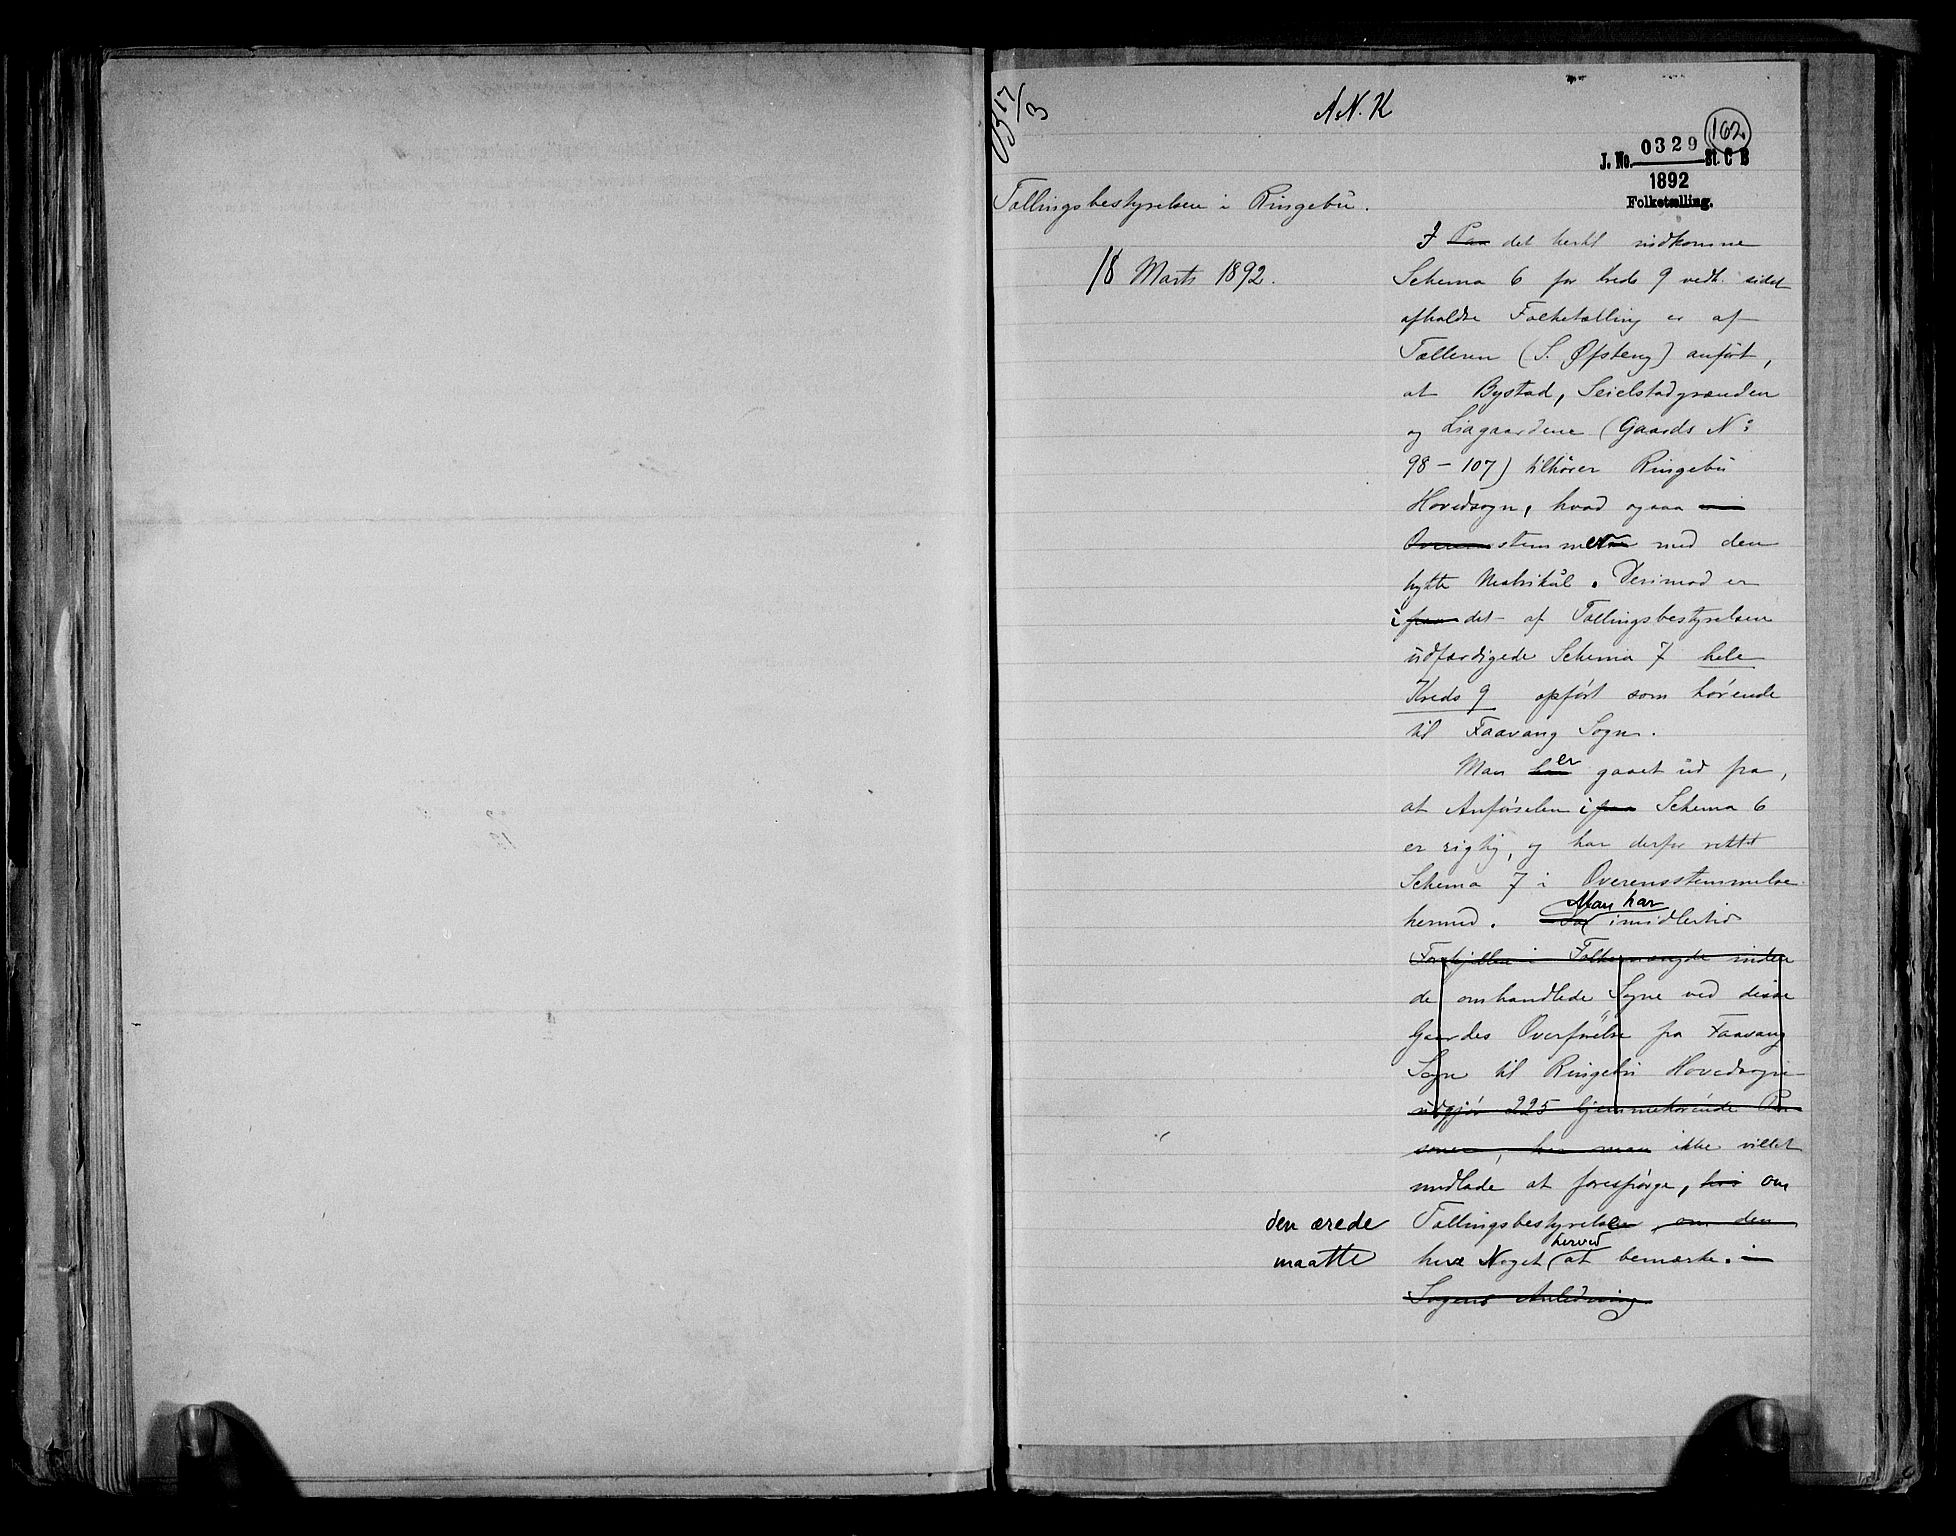 17/3
A.N.K
162.
J. No. 0329 St. C B
1892
Folketælling.
Tællingsbestyrelsen i Ringebu.
18 Marts 1892.
I Paa det hertil indkomne
Schema 6 for Kreds 9 vedk. sidst
afholdte Folketælling er af
Tælleren (S. Øfsteng) anført,
at Bystad, Seielstadgrænden
og Liagaardene (Gaards No
98 – 107) tilhører Ringebu
Hovedsogn, hvad ogsaa i
Overensstemmer med den
trykte Matrikul. Derimod er
i paa det af Tællingsbestyrelsen
udfærdigede Schema 7 hele
Kreds 9 opført som hørende
til Faavang Sogn.
Man har er gaaet ud fra,
at Anførselen i paa Schema 6
er rigtig, og har derfor rettet
Schema 7 i Overensstemmelse
hermed. Man har imidlertid
Forskjellen i Folkemængde inden
de omhandlede Sogne ved disse
Gaardes Overførelse fra Faavang
Sogn til Ringebu Hovedsogn
udgjør 225 hjemmehørende Per
soner, har man ikke villet
undlade at forespørge, om
den ærede Tællingsbestyrelse om den
maatte have Noget herved at bemærke. i
Sagens Anledning